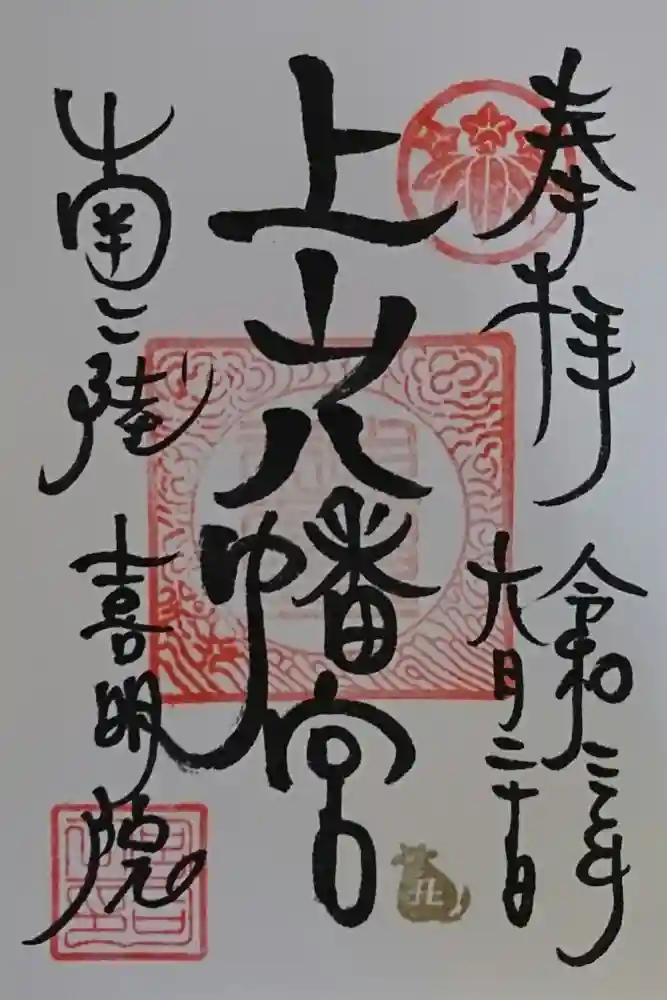 奉拝
令和三年
六月二十日
上山八幡宮
南三陸
喜明院
丑